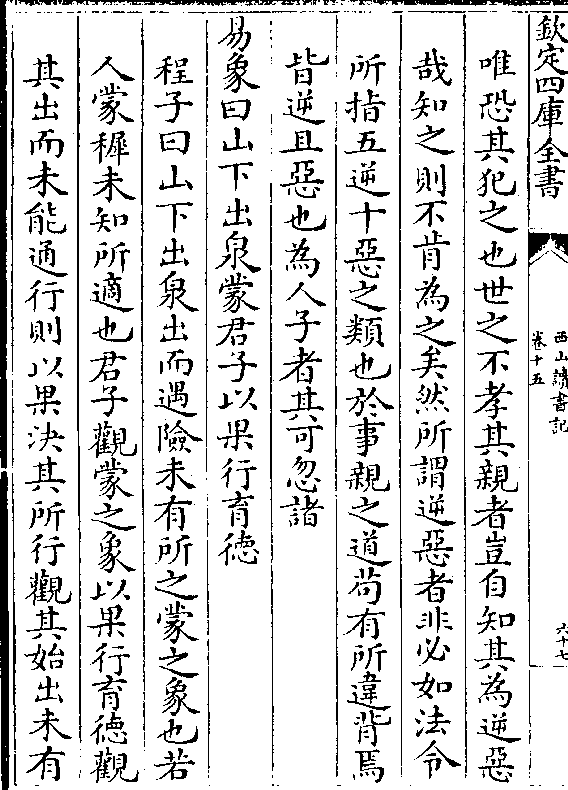 欽定四庫全書
西山讀書記
卷十五
六十七
唯恐其犯之也世之不孝其親者豈自知其為逆惡
哉知之則不肯為之矣然所謂逆惡者非必如法令
所指五逆十惡之類也於事親之道苟有所違背焉
皆逆且惡也為人子者其可忽諸
易象曰山下出泉蒙君子以果行育徳
程子曰山下出泉出而遇險未有所之蒙之象也若
人蒙穉未知所適也君子觀蒙之象以果行育徳觀
其出而未能通行則以果決其所行觀其始出未有